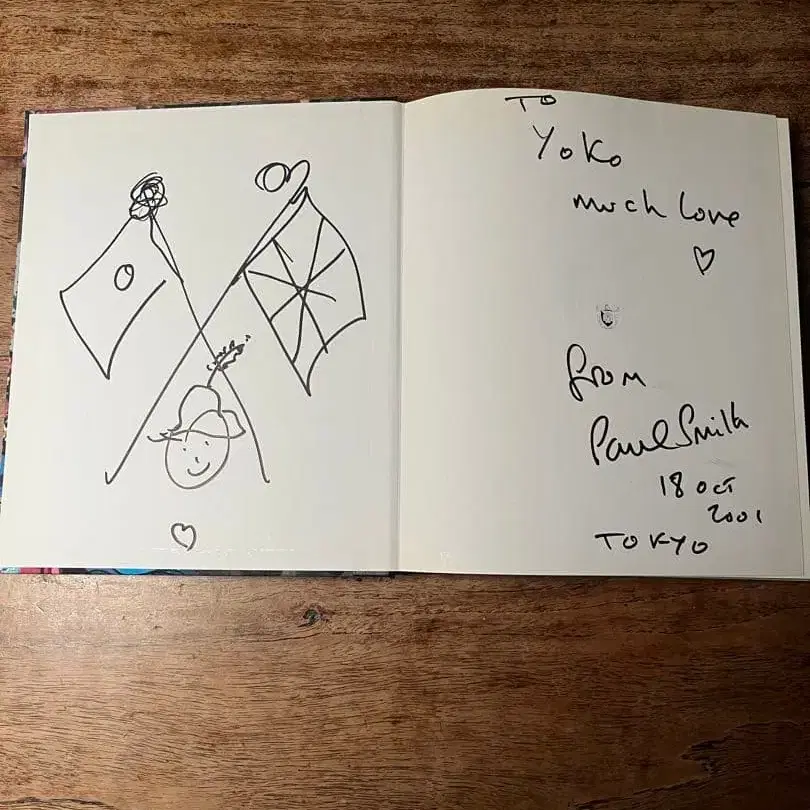 TO
Yoko
much love
from
Paul Smith
18 oct
2001
TOKYO